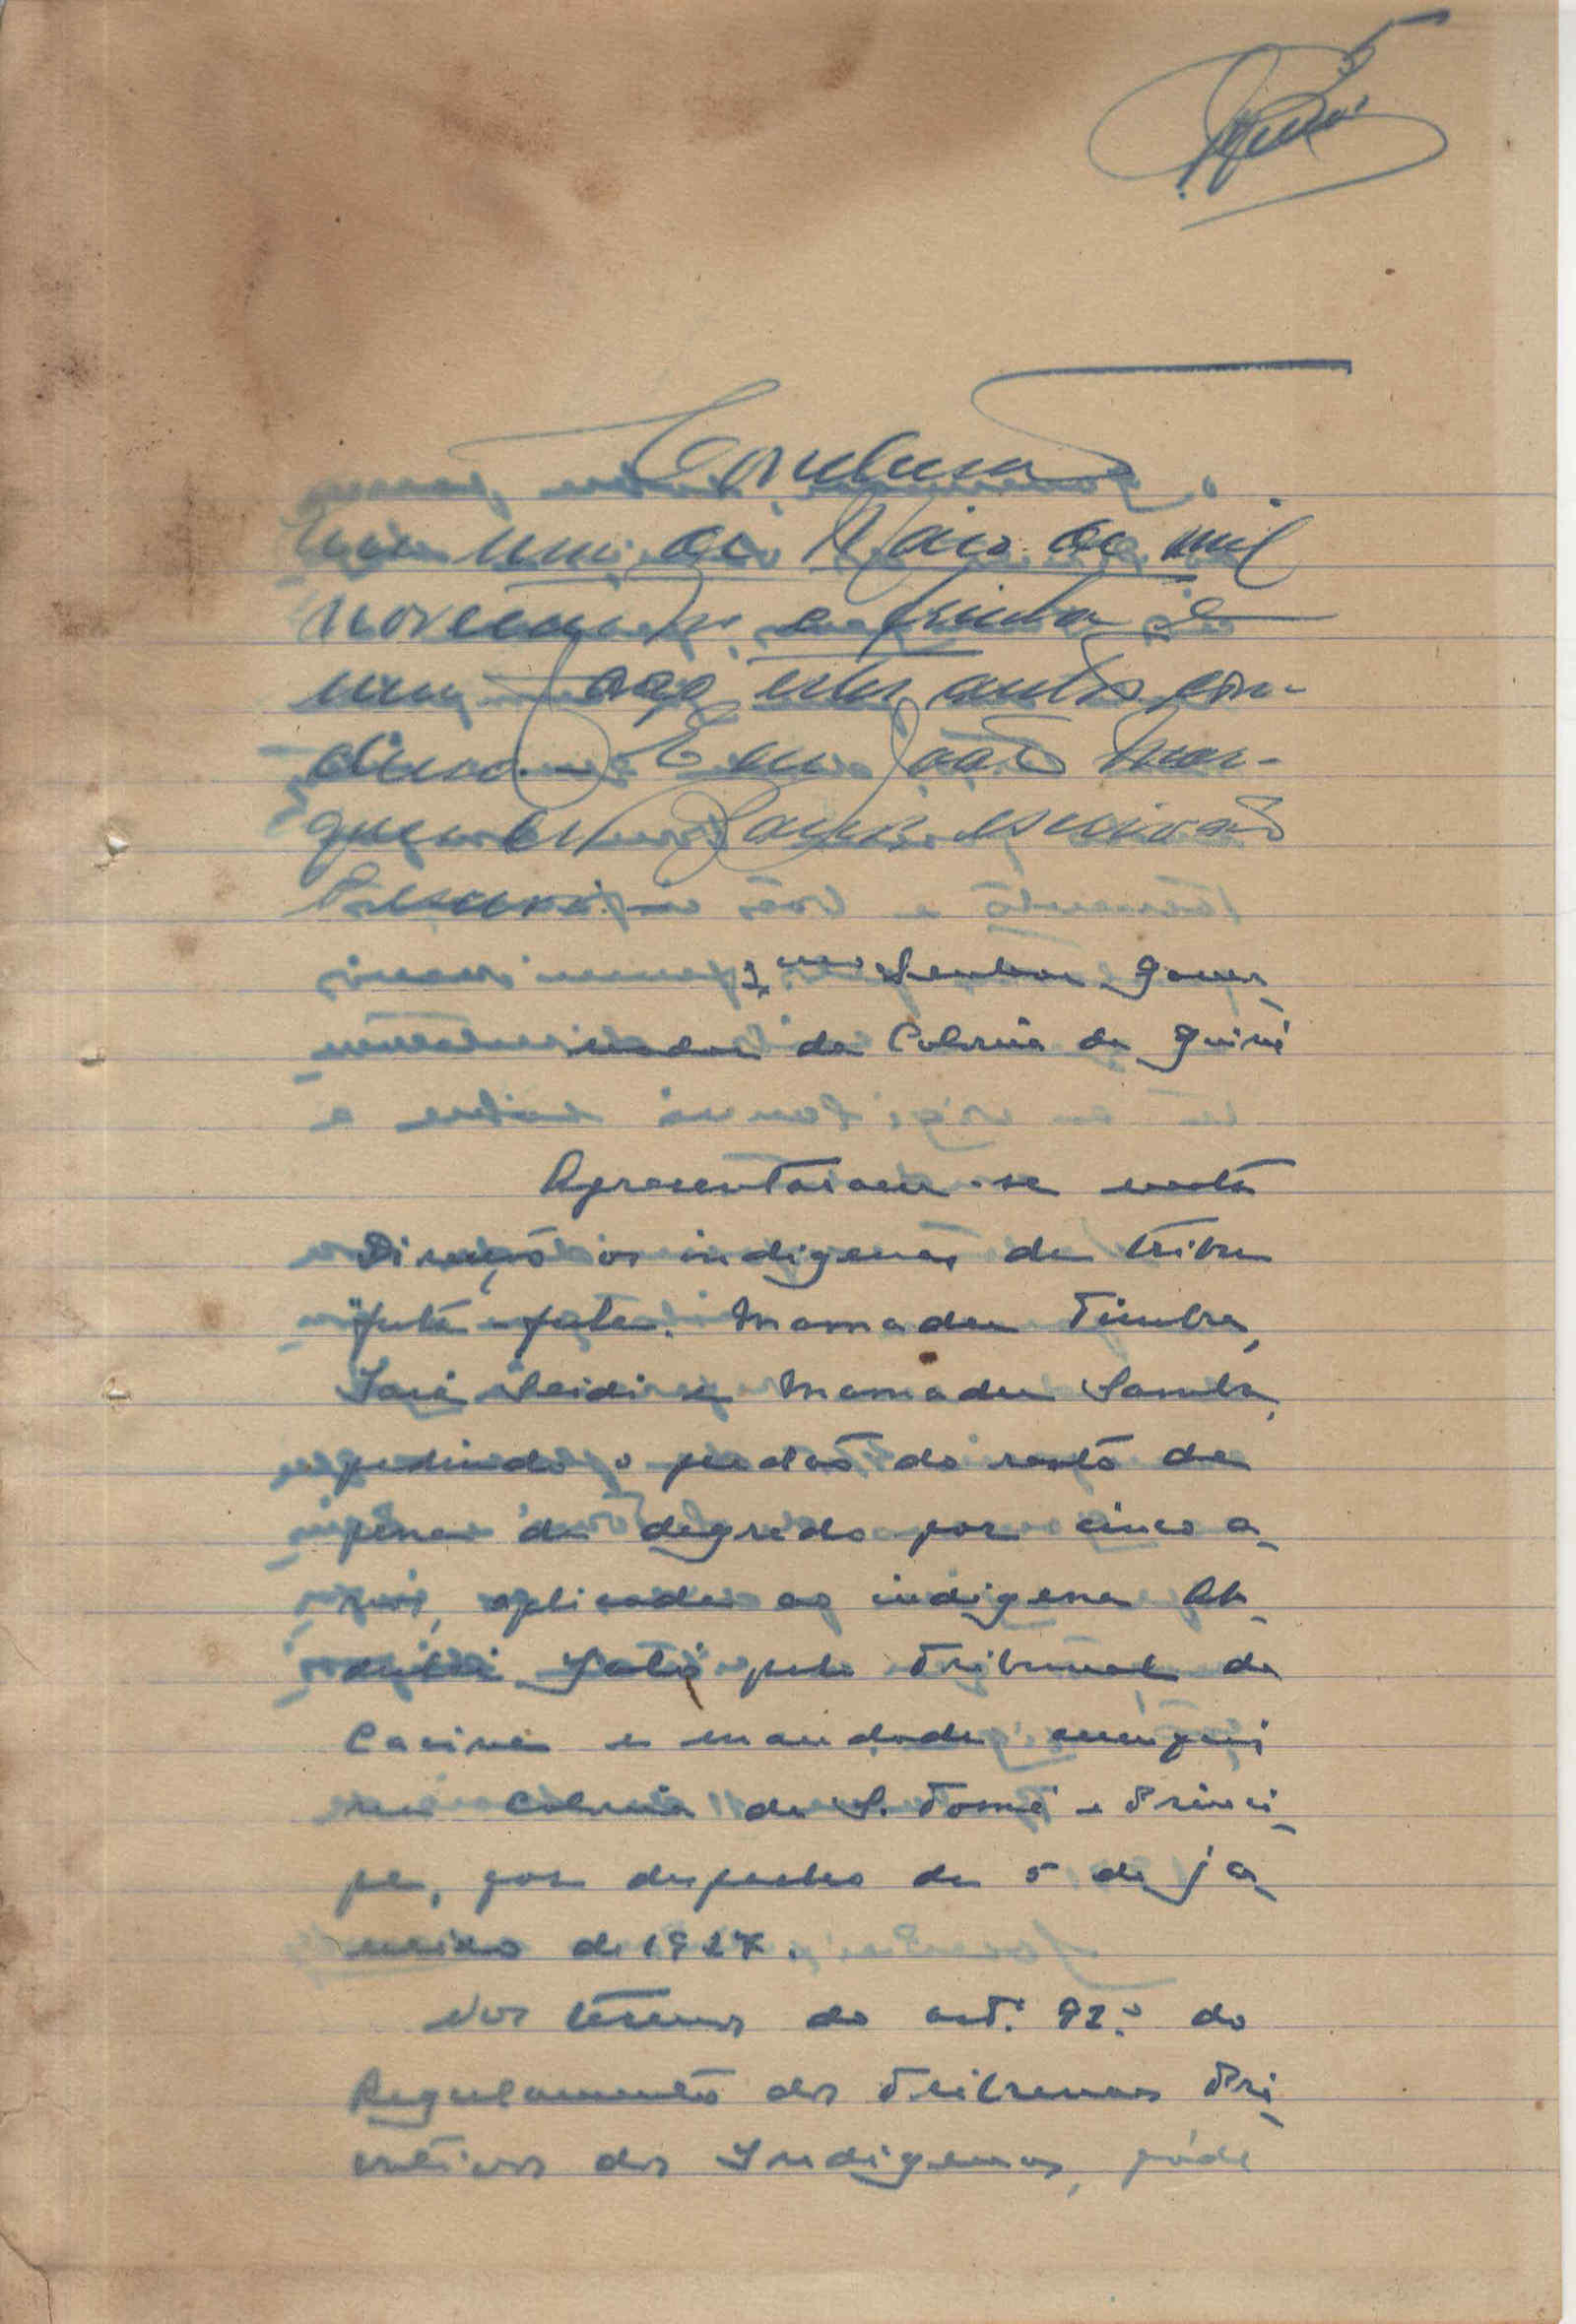 5
Conclusão
um de Maio de mil
novecentos e trinta e
um faço estes autos con-
clusos. Eu João Mar-
ques escrivão
Senhor Gover_
nador da Colonia da Guiné
Apresentaram-se nesta
Direcção os indigenas da tribu
"futa-fula" Mamadu Timbra,
Seidi e Mamadu Samba,
pedindo o perdão do resto da
pena de degredo por cinco a_
nos, aplicada ao indigena Ab_
dulai pelo Tribunal de
Cacine e mandada cumprir
na Colonia de S. Tomé e Princi_
pe, por despacho de 5 de ja_
neiro de 1927.
Nos termos do art.º 92.º do
Regulamento dos Tribunaes Pri_
vativos dos Indigenas, póde